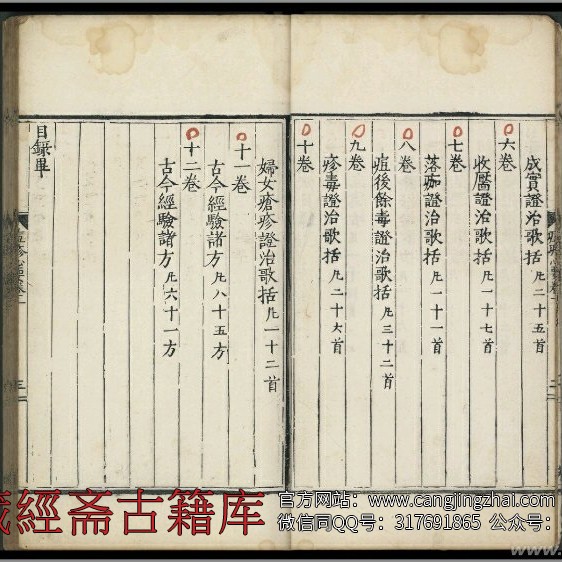 成實證治歌括凡二十五首
六卷
收靨證治歌括凡一十七首
七卷
落痂證治歌括凡一十一首
八卷
痘後餘毒證治歌括凡三十二首
九卷
疹毒證治歌括凡二十六首
十卷
婦女瘡疹證治歌括凡一十二首
十一卷
古今經驗諸方凡八十五方
十二卷
古今經驗諸方凡六十一方
目錄畢
經斋古籍库
官方网站：www.cangjingzhai.com
微信同QQ号：317691865 公众号：
www.